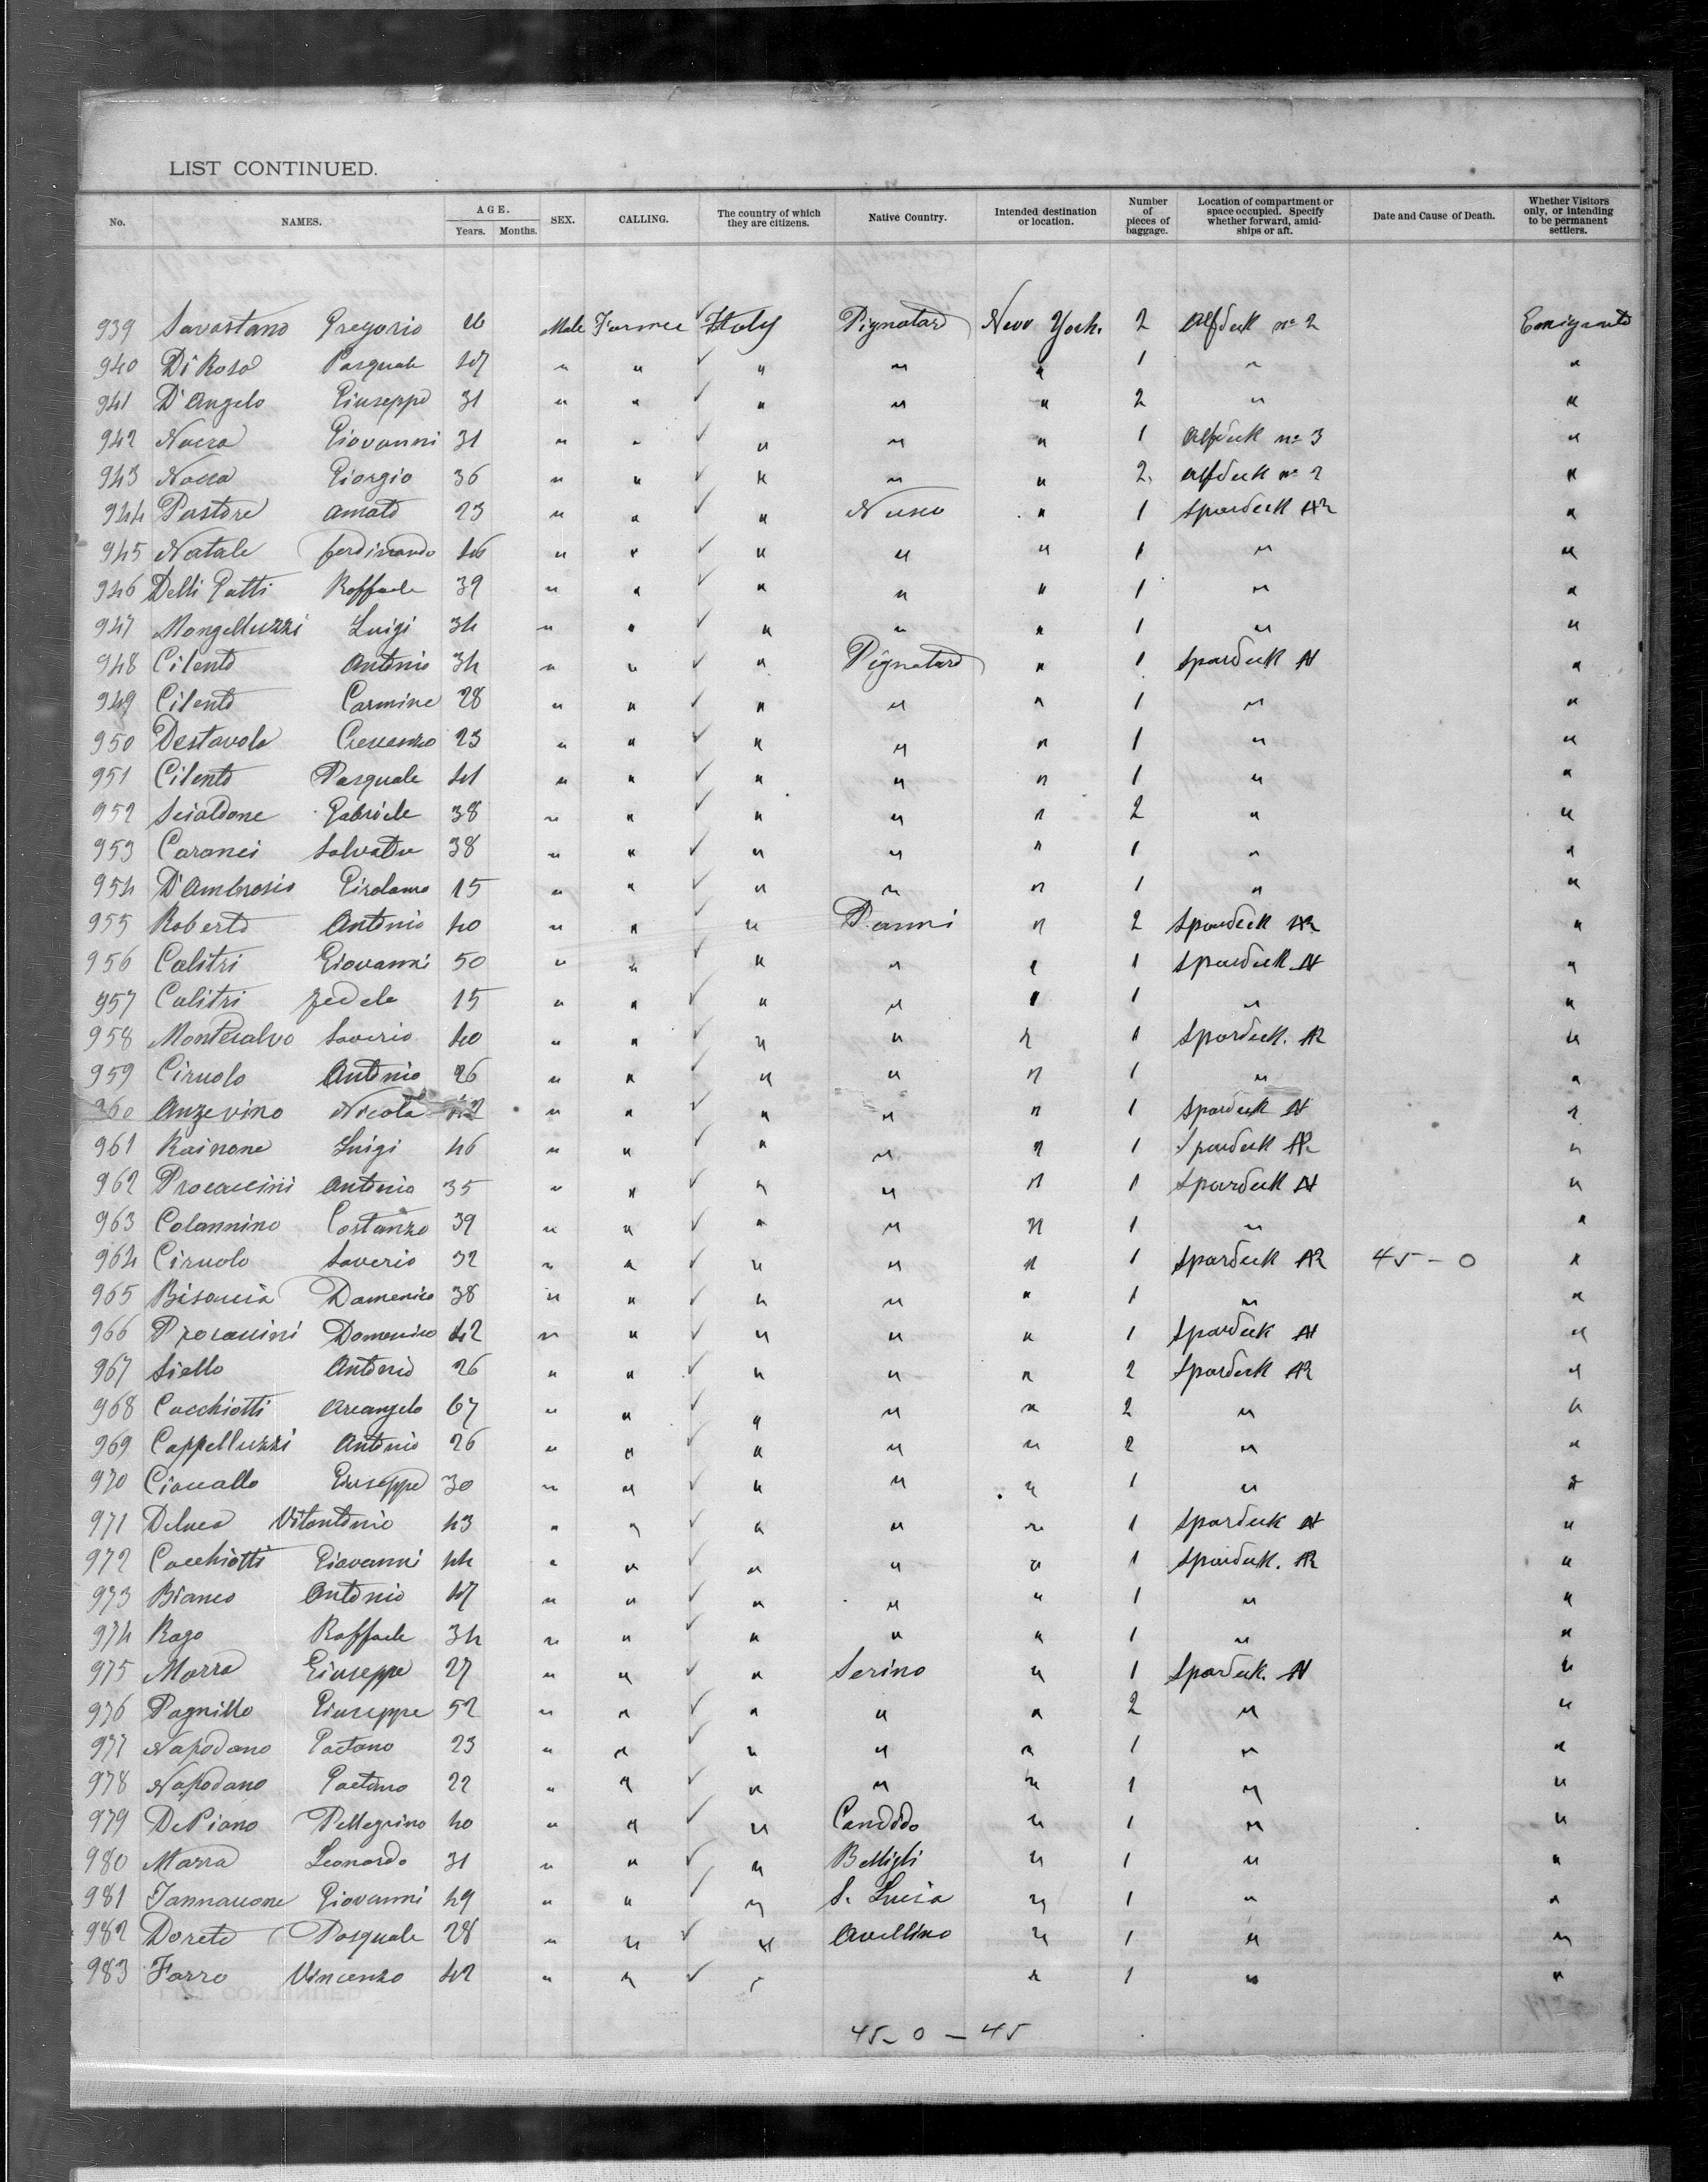 LIST CONTINUED.
No. NAMES. AGE. Years. Months. SEX. CALLING. The country of which they are citizens. Native Country. Intended destination or location. Number of pieces of baggage. Location of compartment or space occupied. Specify whether forward, amidships or aft. Date and Cause of Death. Whether Visitors only, or intending to be permanent settlers.
939 Savastano Gregorio Male Farmer Italy Pignataro New York. 2 Alfdeck no 2
940 Di Rosa Pasquale 47 " " " " " 1 " "
941 D'Angelo Giuseppe 31 " " " " " 2 " "
942 Nacca Giovanni 31 " " " " " 1 Alfdeck no 3 "
943 Nacca Giorgio 36 " " " " " 2 Alfdeck no 2 "
944 Pastore Amato 23 " " " Nusco " 1 Spardeck "
945 Natale Ferdinando 46 " " " " " 1 " "
946 Delli Gatti Raffaele 39 " " " " " 1 " "
947 Mongelluzzi Luigi 34 " " " " " 1 " "
948 Cilento Antonio 34 " " " Pignataro " 1 Spardeck "
949 Cilento Carmine 28 " " " " " 1 " "
950 Destavola 23 " " " " " 1 " "
951 Cilento Pasquale 41 " " " " " 1 " "
952 Scialdone Gabriele 38 " " " " " 2 " "
953 Caranci Salvatore 38 " " " " " 1 " "
954 D'Ambrosio Girolamo 15 " " " " " 1 " "
955 Roberto Antonio 40 " " " Panni " 2 Spardeck "
956 Calitri Giovanni 50 " " " " " 1 Spardeck "
957 Calitri Fedele 15 " " " " " 1 " "
958 Montecalvo Saverio 40 " " " " " 1 Spardeck. "
959 Ciruolo Antonio 26 " " " " " 1 " "
960 Anzevino Nicola " " " " " 1 Spardeck "
961 Rainone Luigi 46 " " " " " 1 Spardeck "
962 Procaccini Antonio 35 " " " " " 1 Spardeck "
963 Colannino Costanzo 39 " " " " " 1 " "
964 Ciruolo Saverio 32 " " " " " 1 Spardeck 45 - 0 "
965 Bisaccia Domenico 38 " " " " " 1 " "
966 Procaccini Domenico 42 " " " " " 1 Spardeck "
967 Siello Antonio 26 " " " " " 2 Spardeck "
968 Cocchiotti Arcangelo 67 " " " " " 2 " "
969 Cappelluzzi Antonio 26 " " " " " 2 " "
970 Giuseppe 30 " " " " " 1 " "
971 Deluca Vitantonio 43 " " " " " 1 Spardeck "
972 Cocchiotti Giovanni 44 " " " " " 1 Spardeck. "
973 Bianco Antonio 47 " " " " " 1 " "
974 Rago Raffaele 34 " " " " " 1 " "
975 Marra Giuseppe 27 " " " Serino " 1 Spardeck. "
976 Pagnillo Giuseppe 52 " " " " " 2 " "
977 Napodano Gaetano 23 " " " " " 1 " "
978 Napodano Gaetano 22 " " " " " 1 " "
979 DePiano Pellegrino 40 " " " Candido " 1 " "
980 Marra Leonardo 31 " " " " 1 " "
981 Iannaccone Giovanni 49 " " " S. Lucia " 1 " "
982 Doreto Pasquale 28 " " " Avellino " 1 " "
983 Farro Vincenzo 42 " " " " 1 " "
45 - 0 - 45